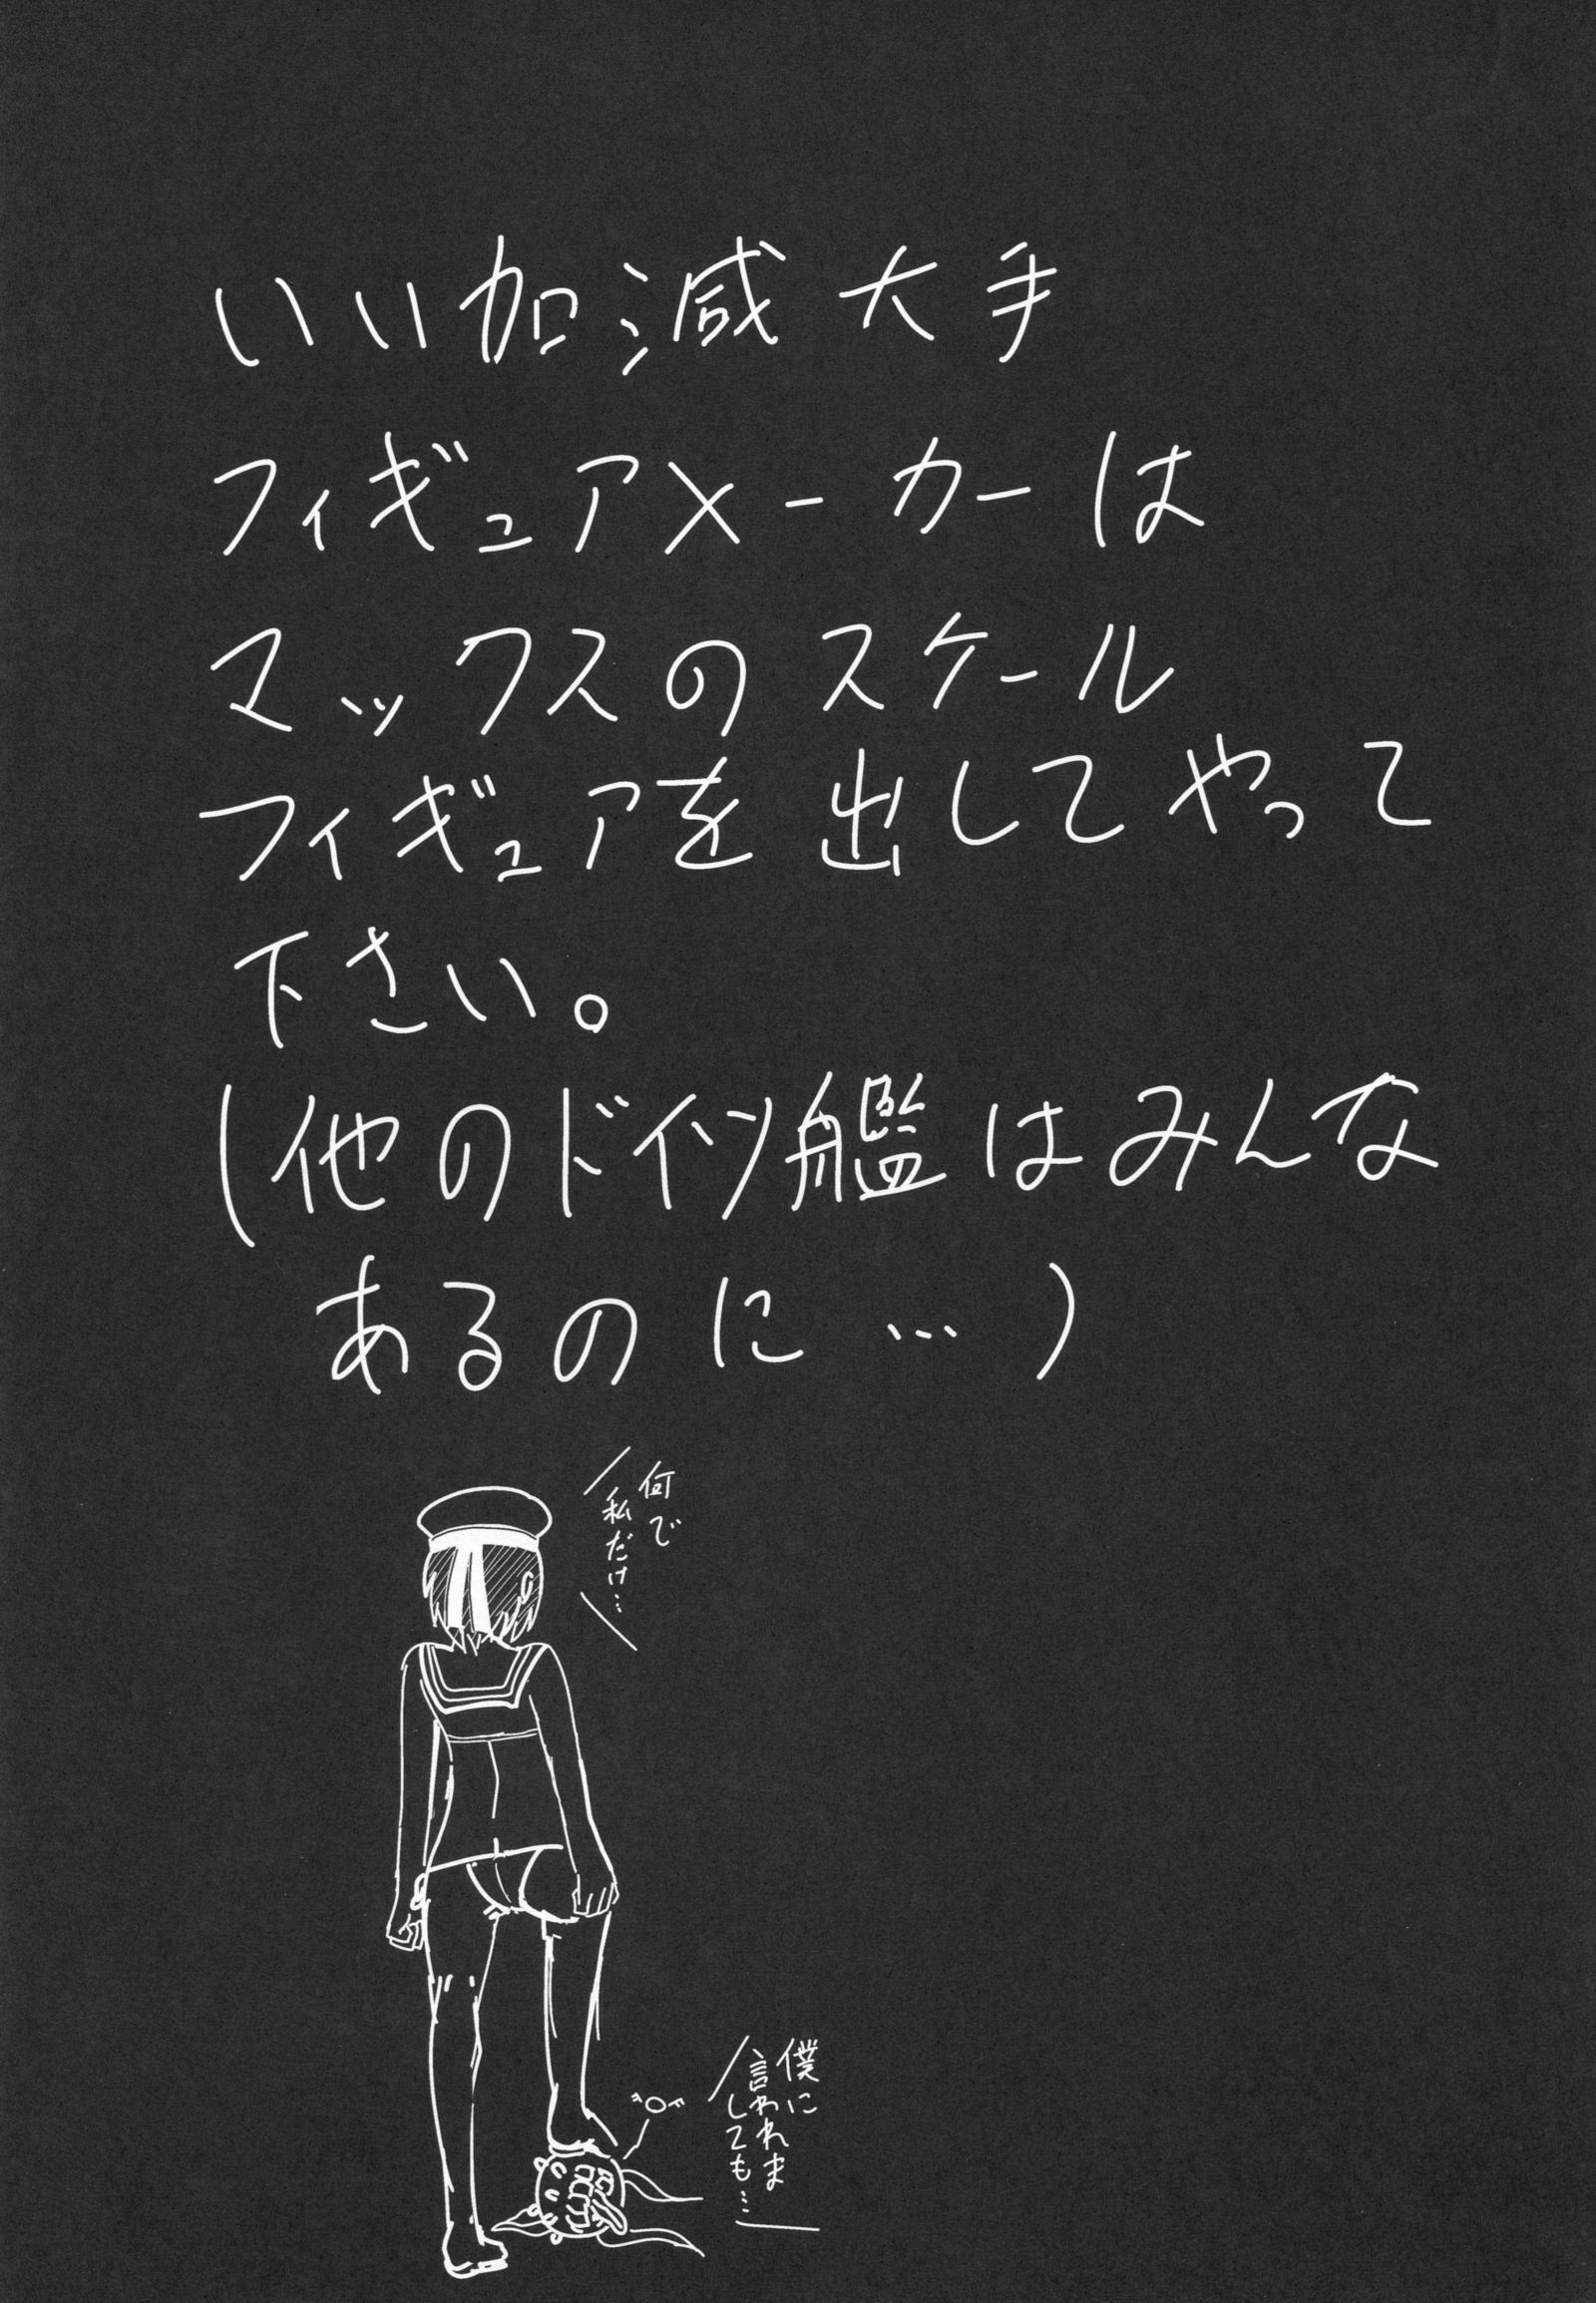 いい加減大手
フィギュアメーカーは
マックスのスケール
フィギュアを出してやって
下さい。
(他のドイツ艦はみんな
あるのに…)
何で
私だけ…
僕に
言われま
しても…